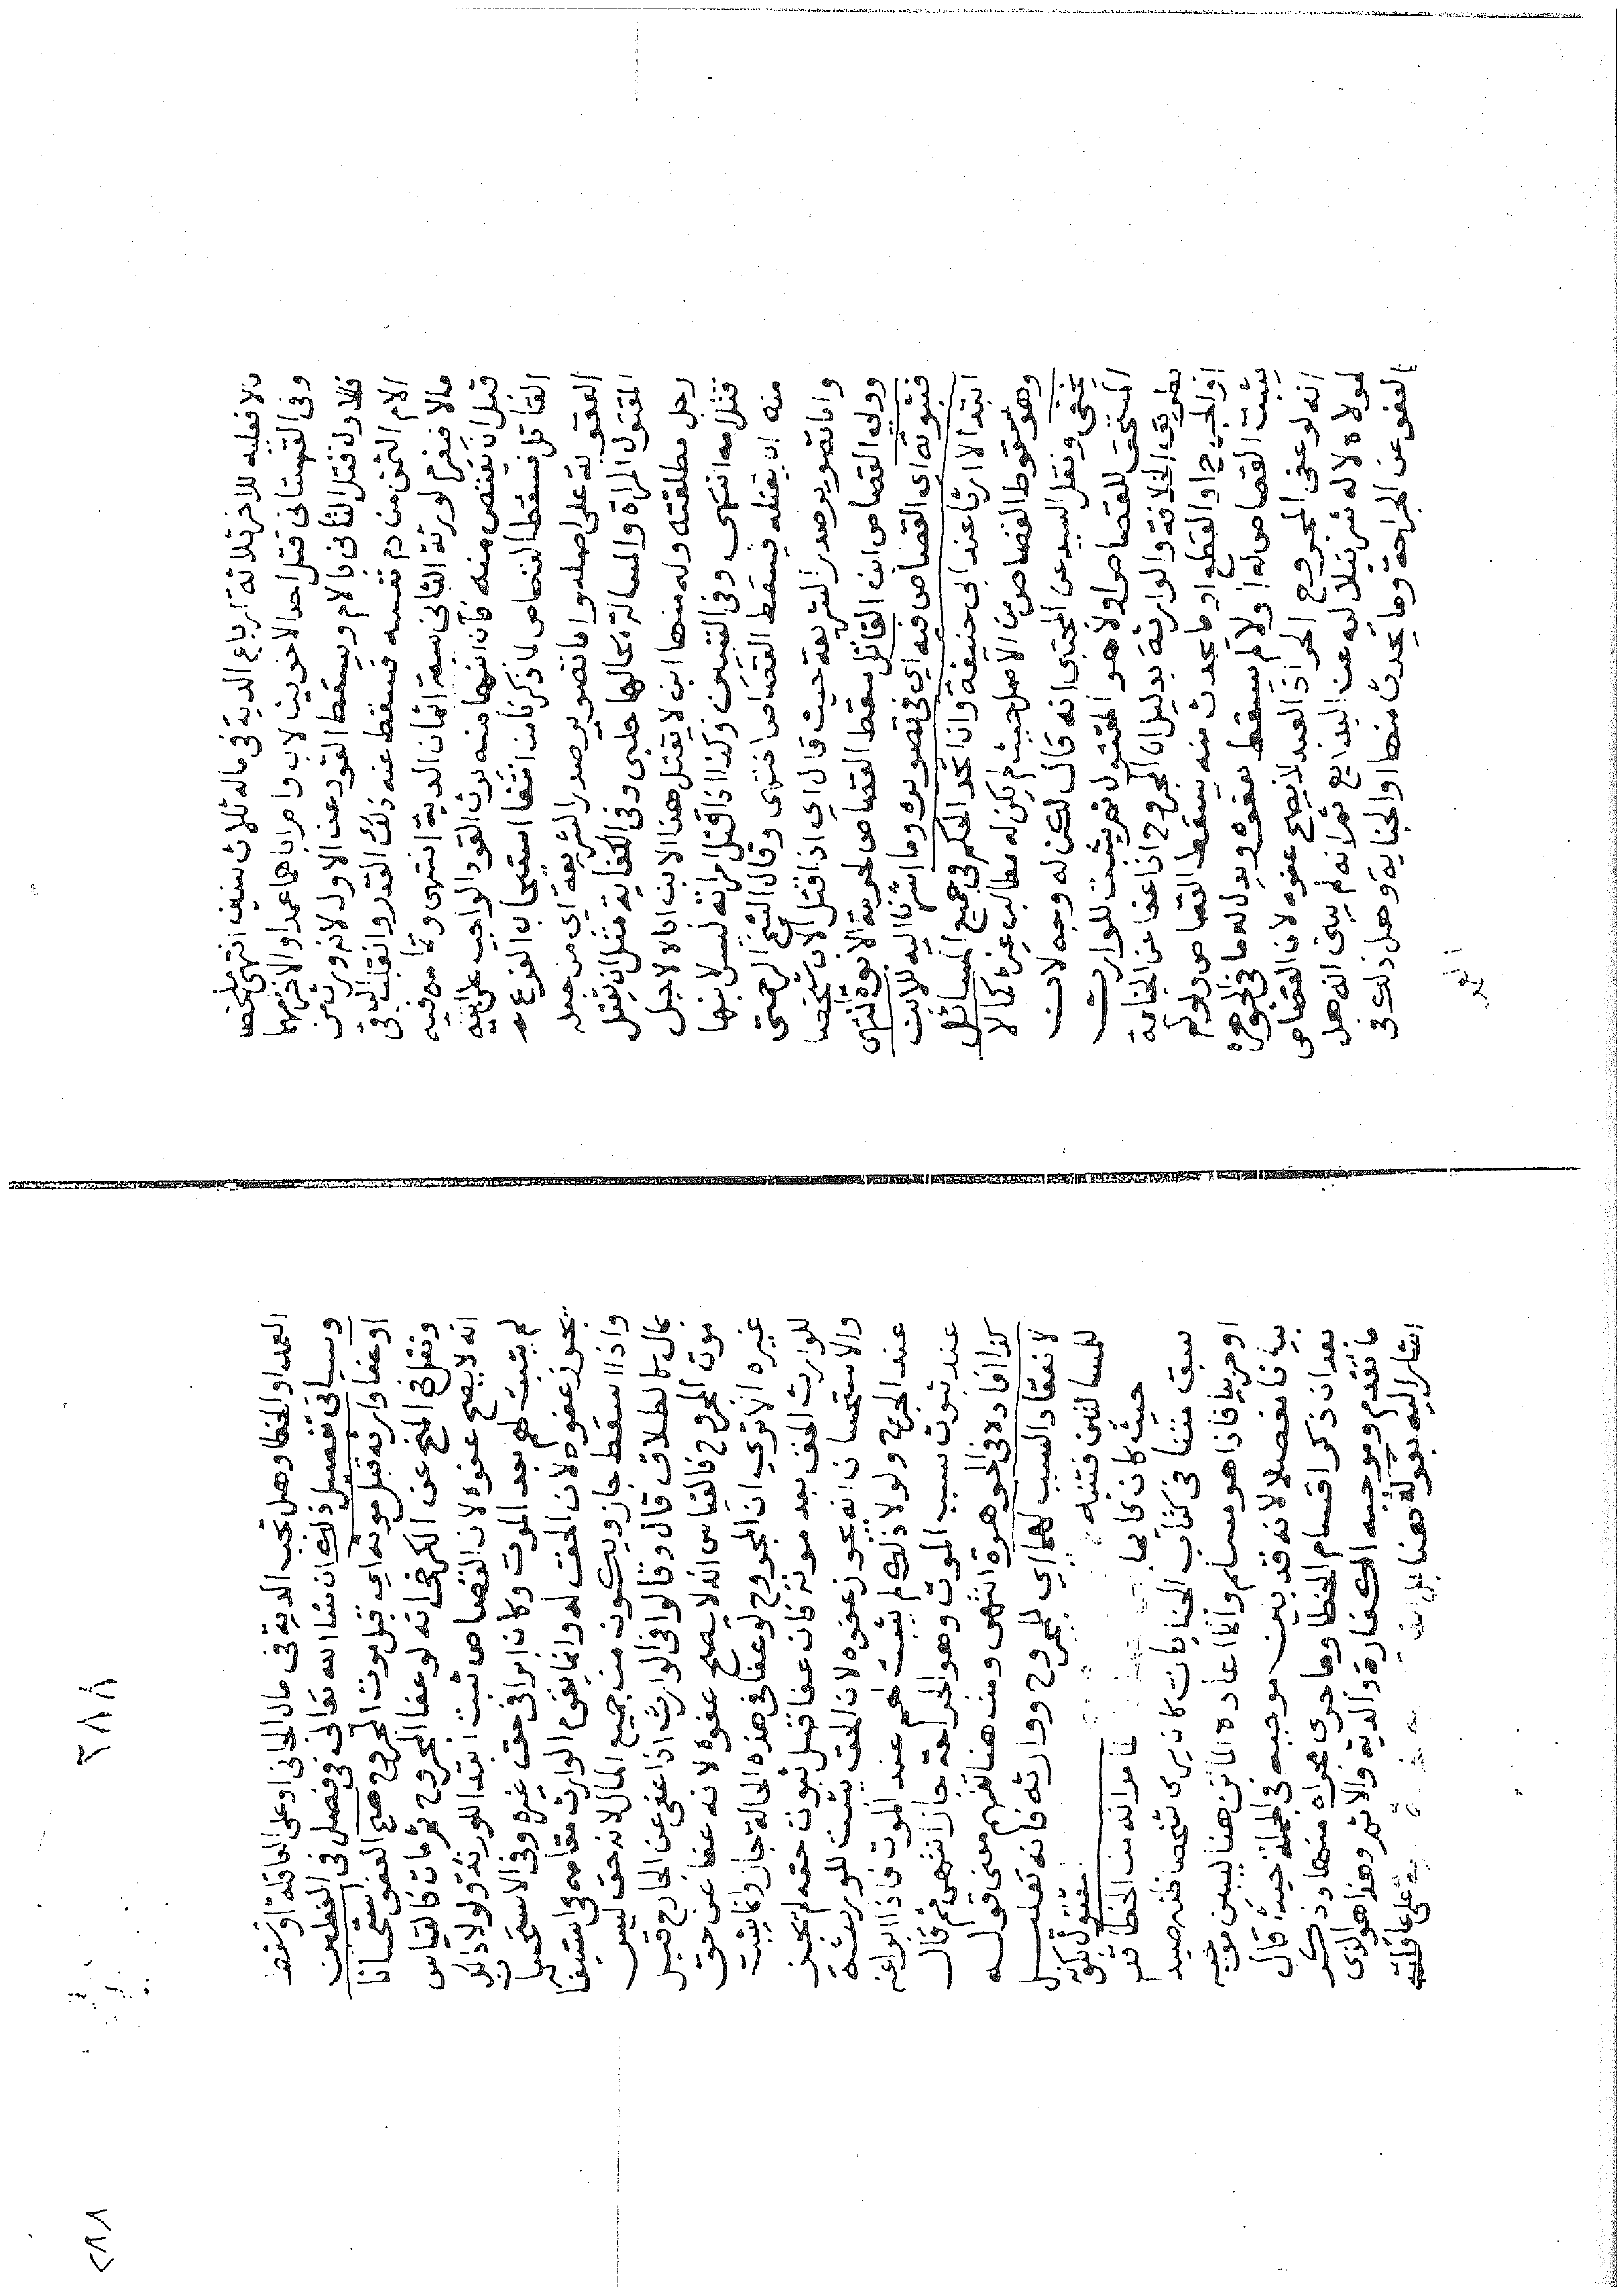 مالا فعليه للاخر ثلاثة ارباع الدية في ماله ثلاث سنين انتهى ملخصا
وفي القهستاني قتل احد الاخوين لاب وام اباهما عمدا والاخر امهما
فللاول قتل الثاني بالام ويسقط القود عن الاول لانه ورث من
الام الثمن من دم نفسه فسقط عنه ذلك القدر وانقلب الباقي
مالا فيغرم لورثة الثاني سبعة اثمان الدية انتهى وتمامه فيه
قبل ان يقتص منه كان ابنها منه يرث القود الواجب على ابيه
القاتل فيسقط القصاص لما ذكرنا من انتفا استيجاب الفرع
العقوبة على اصله واما تصوير صدر الشريعة اي من جعله
المقتول المراة والمسالة بحالها حلبي وفي الكفاية مثل ان يقتل
رجل مطلقته وله منها ابن لا يقتل هذا الابن اباه لاجل
قتل امه انتهى وفي التبيين وكذا اذا قتل امراته ليس لابنها
منه ان يقتله فيسقط القصاص انتهى وقال الشيخ الرحمتي
واما تصوير صدر الشريعة حيث قال اي اذا قتل الاب شخصا
وولي القصاص ابن القاتل سقط القصاص لحرمة الابوة انتهى
فثبوته اي القصاص فيه اي في تصويره وما اشرنا اليه للابن
ابتدا لا ارثا عند ابي حنيفة وان اتحد الحكم في جميع المسائل
وهو سقوط القصاص من الاصل حيث لم يكن له مطالب غيره كما لا
يخفى ونقل السيد عن المجتبى انه قال لكن له وجه لان
المستحق للقصاص اولا هو المقتول ثم يثبت للوارث
بطريق الخلافة والوارثة بدليل ان المجروح اذا عفا عن الجناية
او الجرح او القطع او ما يحدث منه سقط القصاص ولو لم
يثبت القصاص له اولا لم يسقط بعفوه ويدل له ما في الجوهرة
انه لو عفى المجروح الحر اذ العبد لا يصح عفوه لان القصاص
لمولاه لا له شرنبلاليه عن البدايع ثم انه لم يبين انه هل
العفو عن الجراحة وما يحدث منها او الجناية وهل ذلك في
العمد

٢٨٨
٢٨٨
العمد او الخطا وهل تجب الدية في مال الجاني او على العاقلة او تسقط
وسياتي تفصيل ذلك ان شا الله تعالى في فصل في الفعلين
او عفا وارثه قبل موته اي قبل موت المجروح صح العفو استحسانا
ونقل في المنح عن الكرخي انه لو عفا المجروح ثم مات فالقياس
انه لا يصح عفوه لان القصاص ثبت ابتدا للورثة ولولا ذلك
لم يثبت لهم بعد الموت وكان ابرا في حق غيره وفي الاستحسان
يجوز عفوه لان الحق له وانما يقوم الوارث مقامه في استيفا
واذا اسقط جاز ويكون من جميع المال لانه حق ليس
بمال كالطلاق قال وقالوا في الوارث اذا عفى عن الجارح قبل
موت المجروح فالقياس انه لا يصح عفوه لانه عفا عن حق
غيره الا تري ان المجروح لو عفا في هذه الحالة جاز وانما يثبت
للوارث الحق بعد موته فان عفا قبل ثبوت حقه لم يجز
والاستحسان انه يجوز عفوه لان الحق يثبت للورثة
عند الجرح ولولا ذلك لم يثبت لهم عند الموت فاذا ابرا عنه
عند ثبوت سبب الموت وهو الجراحة جاز انتهى ثم قال
كذا افاده في الجوهرة انتهى ومن هنا تفهم معنى قوله
لانعقاد السبب لهما اي للمجروح ووارثه فانه تعليل
للمسالتين فتنبه
حيث كان غايبا لما مر انه من الخطا قد
سبق متنا في كتاب الجنايات كان يرى شخصا ظنه صيدا
او حربيا فاذا هو مسلم وانما اعاده الماتن هنا ليبين موجبه
بيانا مفصلا لانه قد بين موجبه في الجملة حيث قال
بعد ان ذكر اقسام الخطا وما جرى مجراه منها وذكر
ما تقدم وموجبه الكفارة والدية والاثم وهذا هو الذي
اشار اليه بقوله هنا